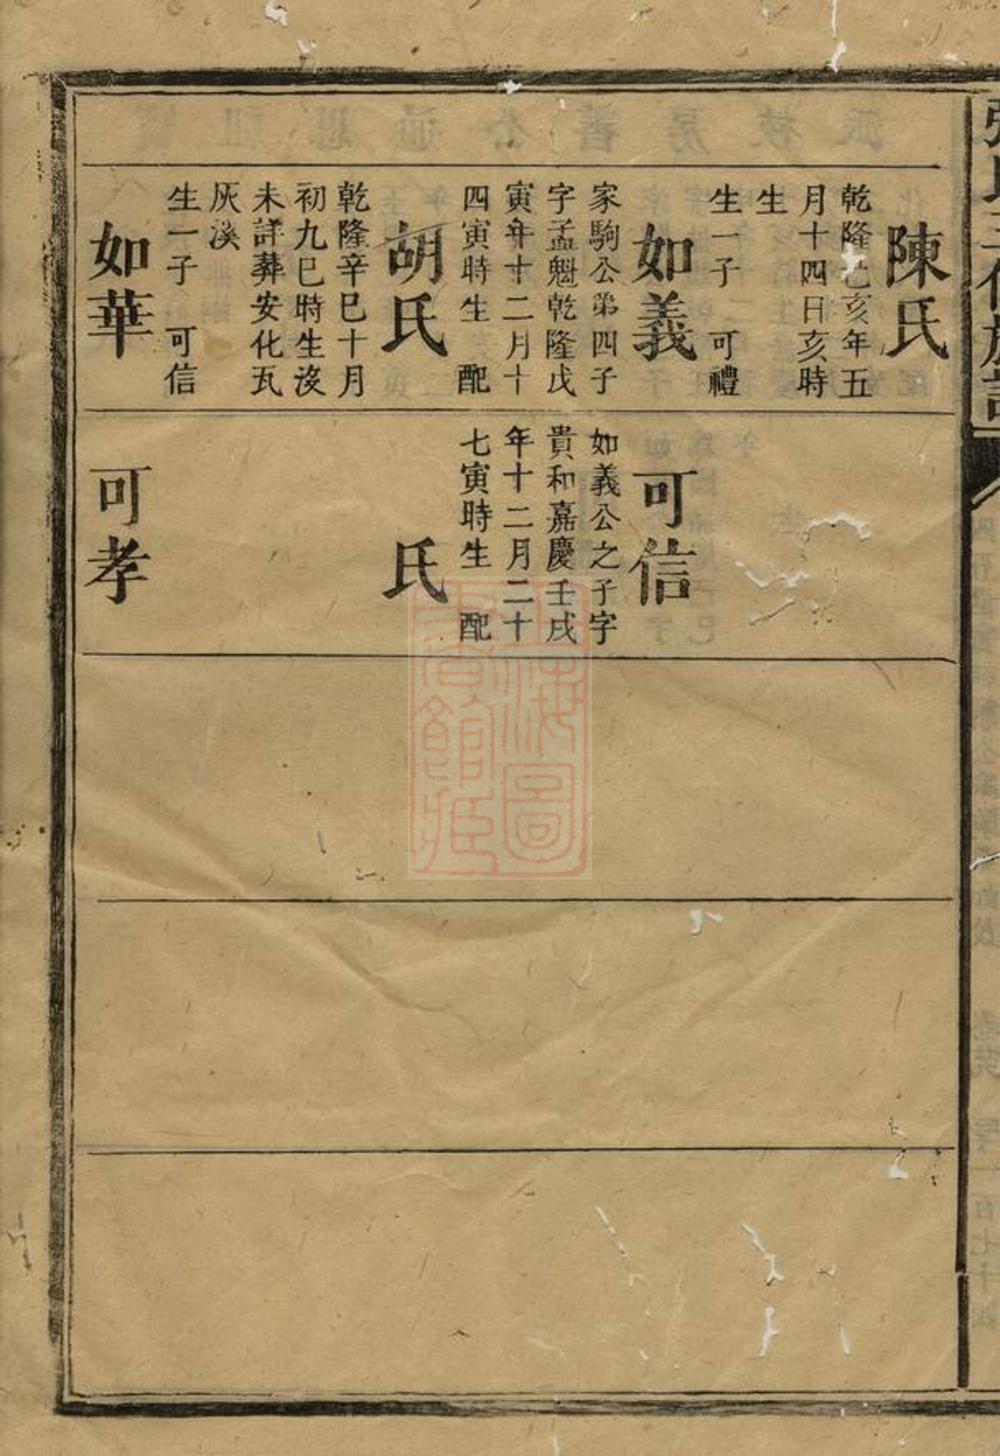 陳氏
乾隆己亥年五
月十四日亥時
生
生一子　可禮
如義
家駒公第四子
字孟魁乾隆戊
寅年十二月十
四寅時生　配
胡氏
乾隆辛巳十月
初九巳時生沒
未詳葬安化瓦
灰溪
生一子　可信
如華
可信
如義公之子字
貴和嘉慶壬戌
年十二月二十
七寅時生　配
氏
可孝
上海圖
書館藏